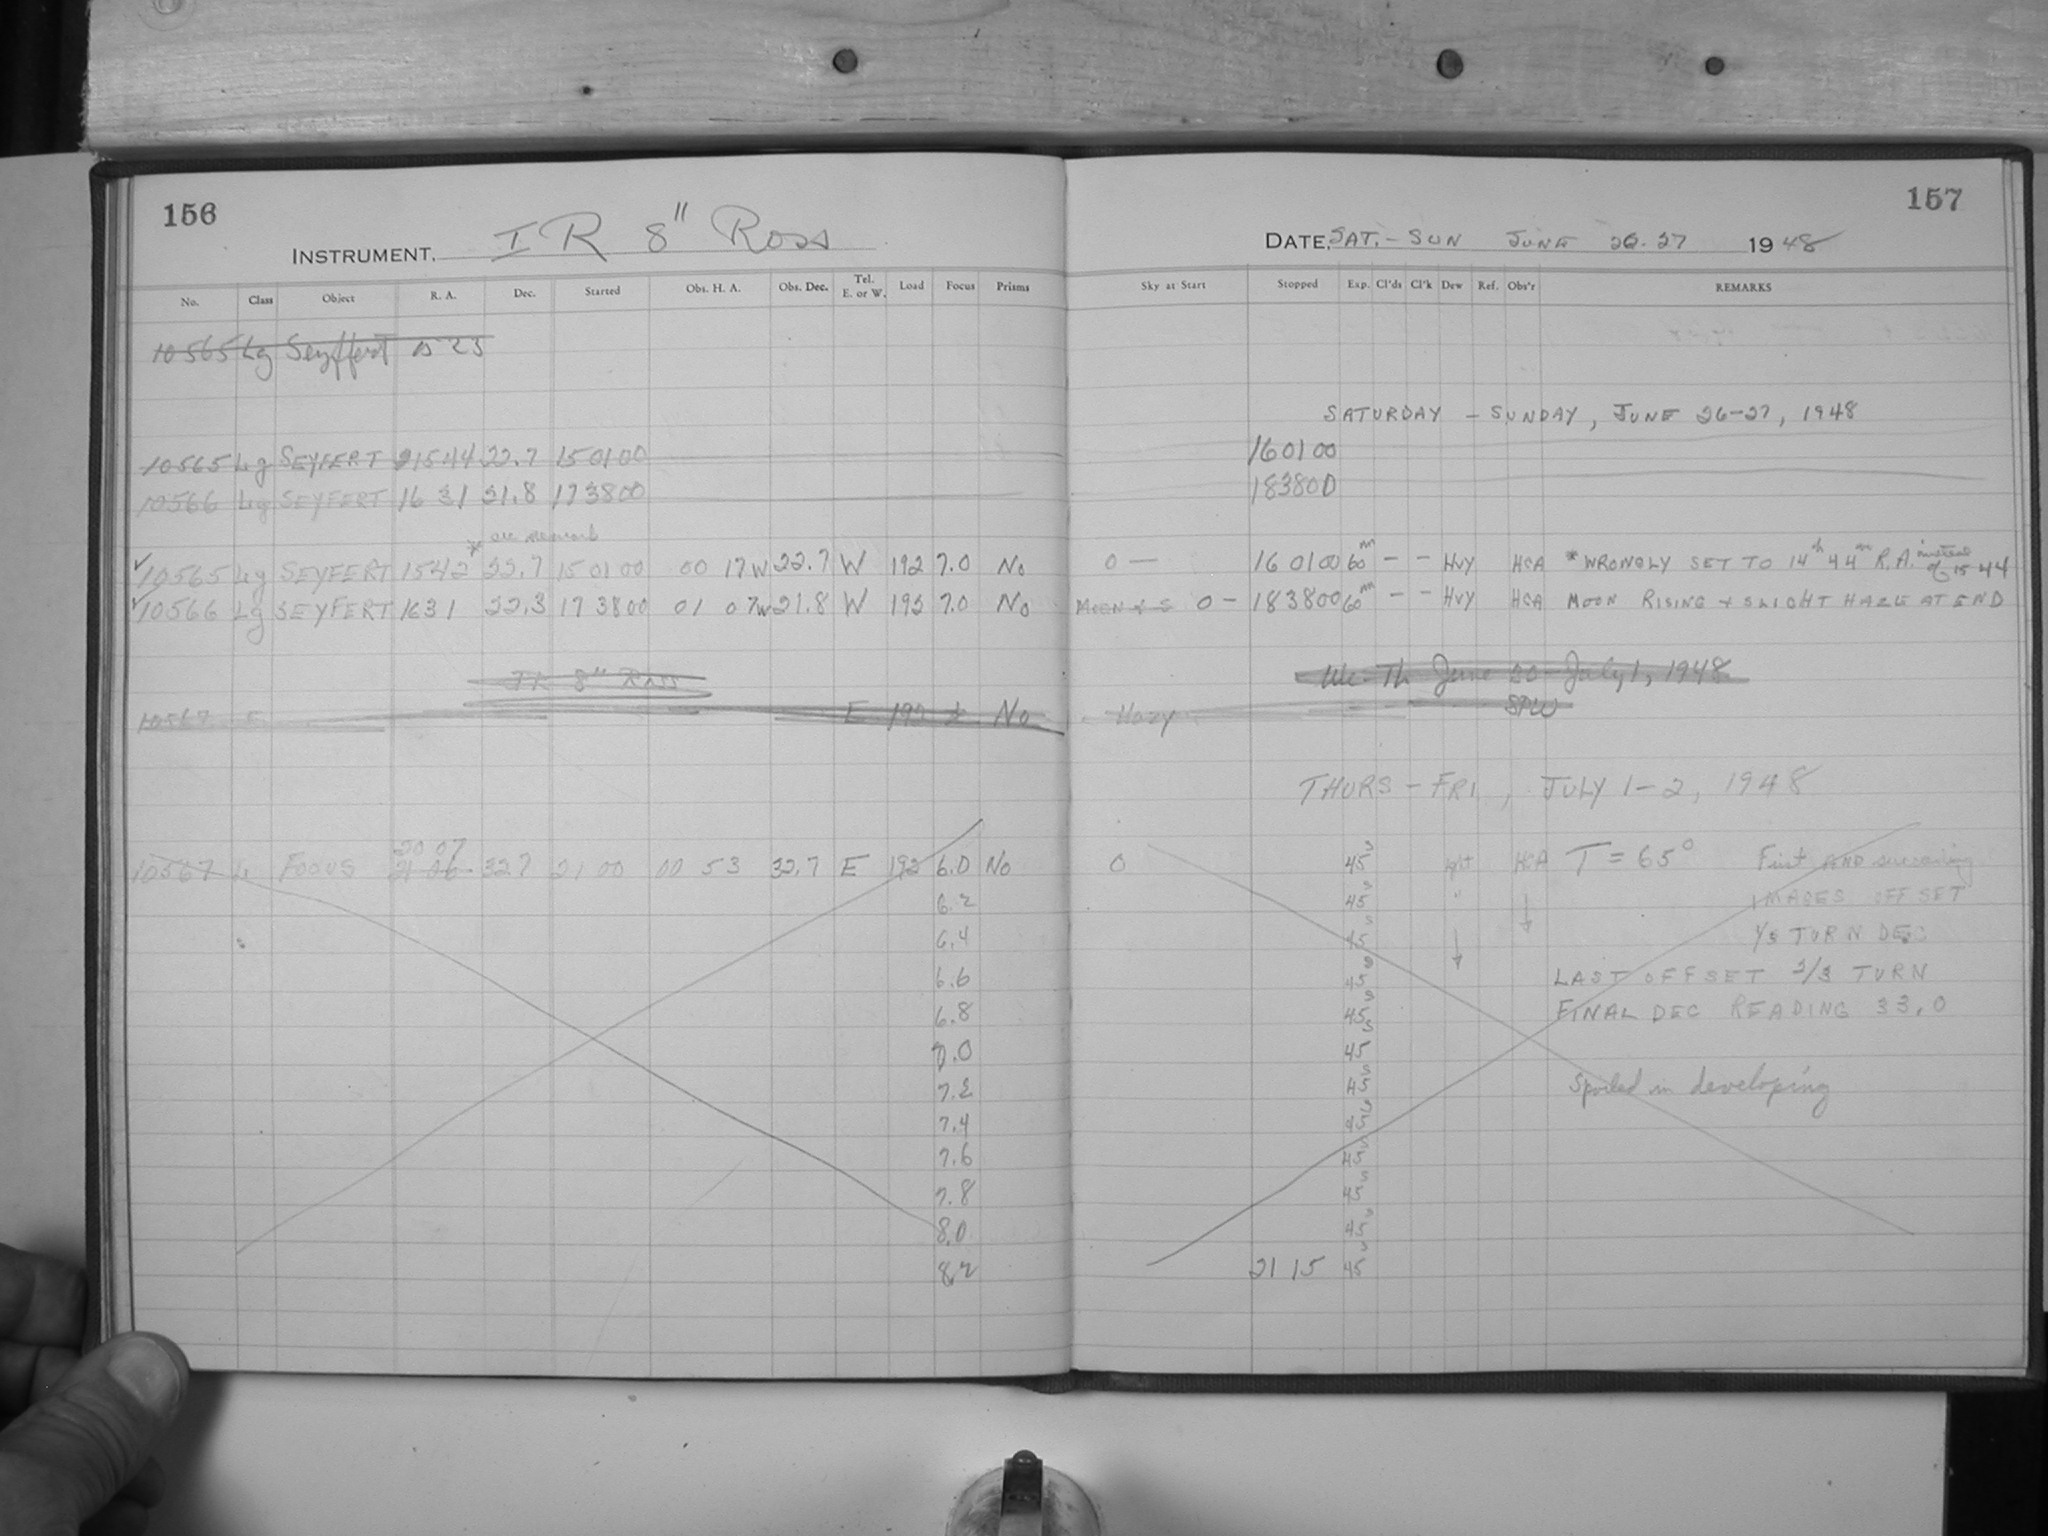 156
INSTRUMENT. IR 8" Ross
No. Class Object R. A. Dec. Started Obs. H. A. Obs. Dec. Tel. E. or W. Load Focus Prisms
10565 Lg Seyffert 15 23
10565 Lg SEYFERT 1544 22.7 15 01 00
10566 Lg SEYFERT 16 31 21.8 17 38 00
* see remark
✓10565 Lg SEYFERT 1542 22.7 15 01 00 00 17W 22.7 W 192 7.0 No
✓10566 Lg SEYFERT 1631 22.3 17 38 00 01 07W 21.8 W 192 7.0 No
IR 8" Ross
10567 F E 192 No
20 07
10567 L FOCUS 21 06 32.7 21 00 00 53 32.7 E 192 6.0 No
6.2
6.4
6.6
6.8
7.0
7.2
7.4
7.6
7.8
8.0
8.2
157
DATE, SAT. - SUN JUNE 26-27 1948
Sky at Start Stopped Exp. Cl'ds Cl'k Dew Ref. Obs'r REMARKS
SATURDAY - SUNDAY, JUNE 26-27, 1948
16 01 00
18 38 00
0 — 16 01 00 60m - - Hvy HCA * WRONGLY SET TO 14h 44m R.A. instead of 15 44
MOON & S 0 - 18 38 00 60m - - Hvy HCA MOON RISING + SLIGHT HAZE AT END
We-Th June 30-July 1, 1948
Hazy SPW
THURS - FRI, JULY 1-2, 1948
0 45s lght HCA T = 65° First AND succeeding
45s " IMAGES OFFSET
45s 1/3 TURN DEC
45s LAST OFFSET 2/3 TURN
45s FINAL DEC READING 33.0
45s
45s Spoiled in developing
45s
45s
45s
45s
21 15 45s